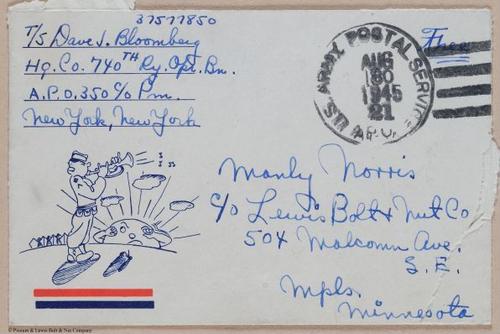 37577850
T/5 Dave J. Bloomberg
Hq. Co. 740TH Ry. Opt. Bn.
A.P.O. 350 C/o P.m.
New York, New York
U.S. ARMY POSTAL SERVICE
AUG
30
1945
21
A.P.O.
Free
Manly Norris
C/o Lewis Bolt & Nut Co
504 Malcomn Ave.
S.E.
Mpls.
Minnesota